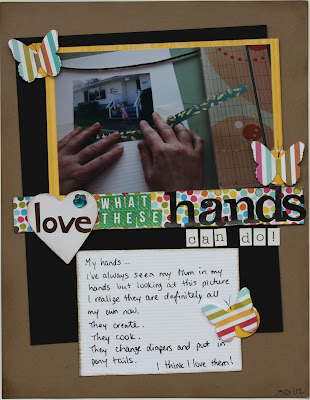 love WHAT THESE hands
can do!
My hands...
I've always seen my Mum in my
hands but looking at this picture
I realize they are definitely all
my own now.
They create.
They cook.
They change diapers and put in
pony tails.
I think I love them!